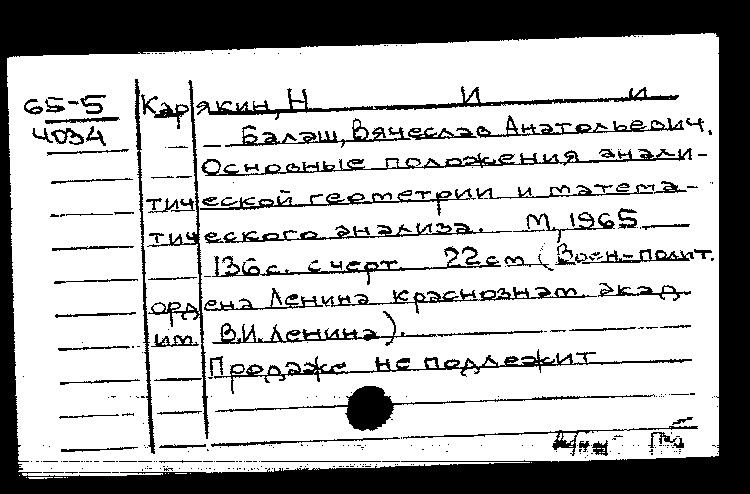 65-5
4034
Карякин, Н И и
Балаш, Вячеслав Анатольевич.
Основные положения анали-
тической геометрии и матема-
тического анализа. М, 1965
136 с. с черт. 22 см (Воен.-полит.
ордена Ленина краснознам. акад
им В.И. Ленина).
Продаже не подлежит